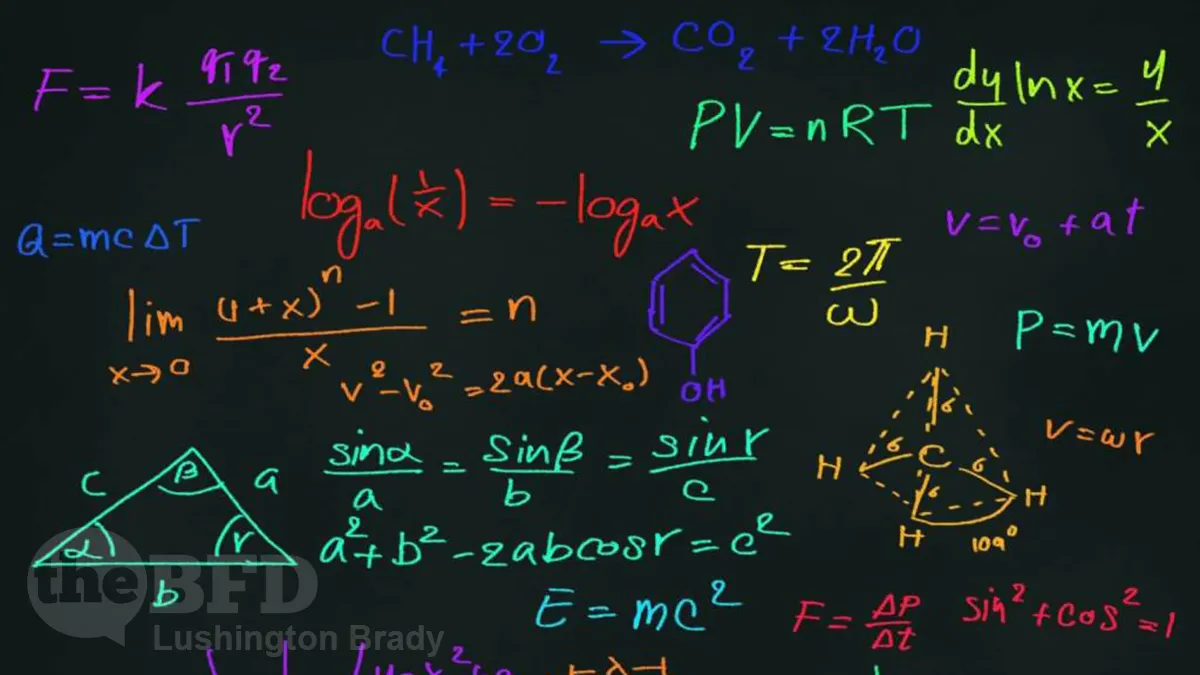 CH₄ + 2O₂ → CO₂ + 2H₂O
F = k q₁q₂/r²
PV = nRT
dy/dx ln x = y/x
logₐ(1/x) = -logₐx
Q = mcΔT
v = v₀ + at
T = 2π/ω
lim x→0 ((1+x)ⁿ - 1)/x = n
P = mv
v² - v₀² = 2a(x - x₀)
OH
H
6
v = ωr
6
C
6
H
6
H
H
109°
c
β
a
sinα/a = sinβ/b = sin r/c
α
r
a² + b² - 2abcosr = c²
b
E = mc²
F = ΔP/Δt
sin² + cos² = 1
theBFD
Lushington Brady